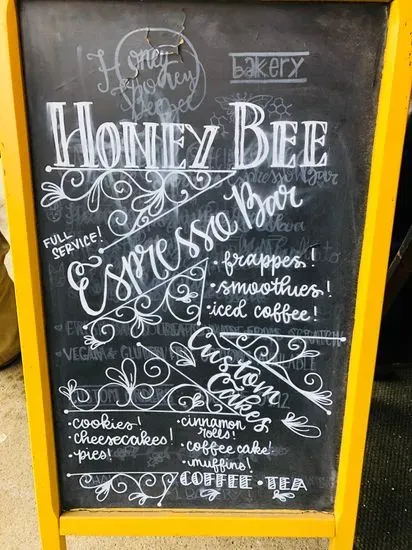 Honey
bakery
HONEY BEE
FULL SERVICE!
Espresso Bar
• frappes!
• smoothies!
• iced coffee!
VEGAN & GLUTEN
Custom Cakes
• cookies!
• cheesecakes!
• pies!
• cinnamon rolls!
• coffee cake!
• muffins!
COFFEE • TEA